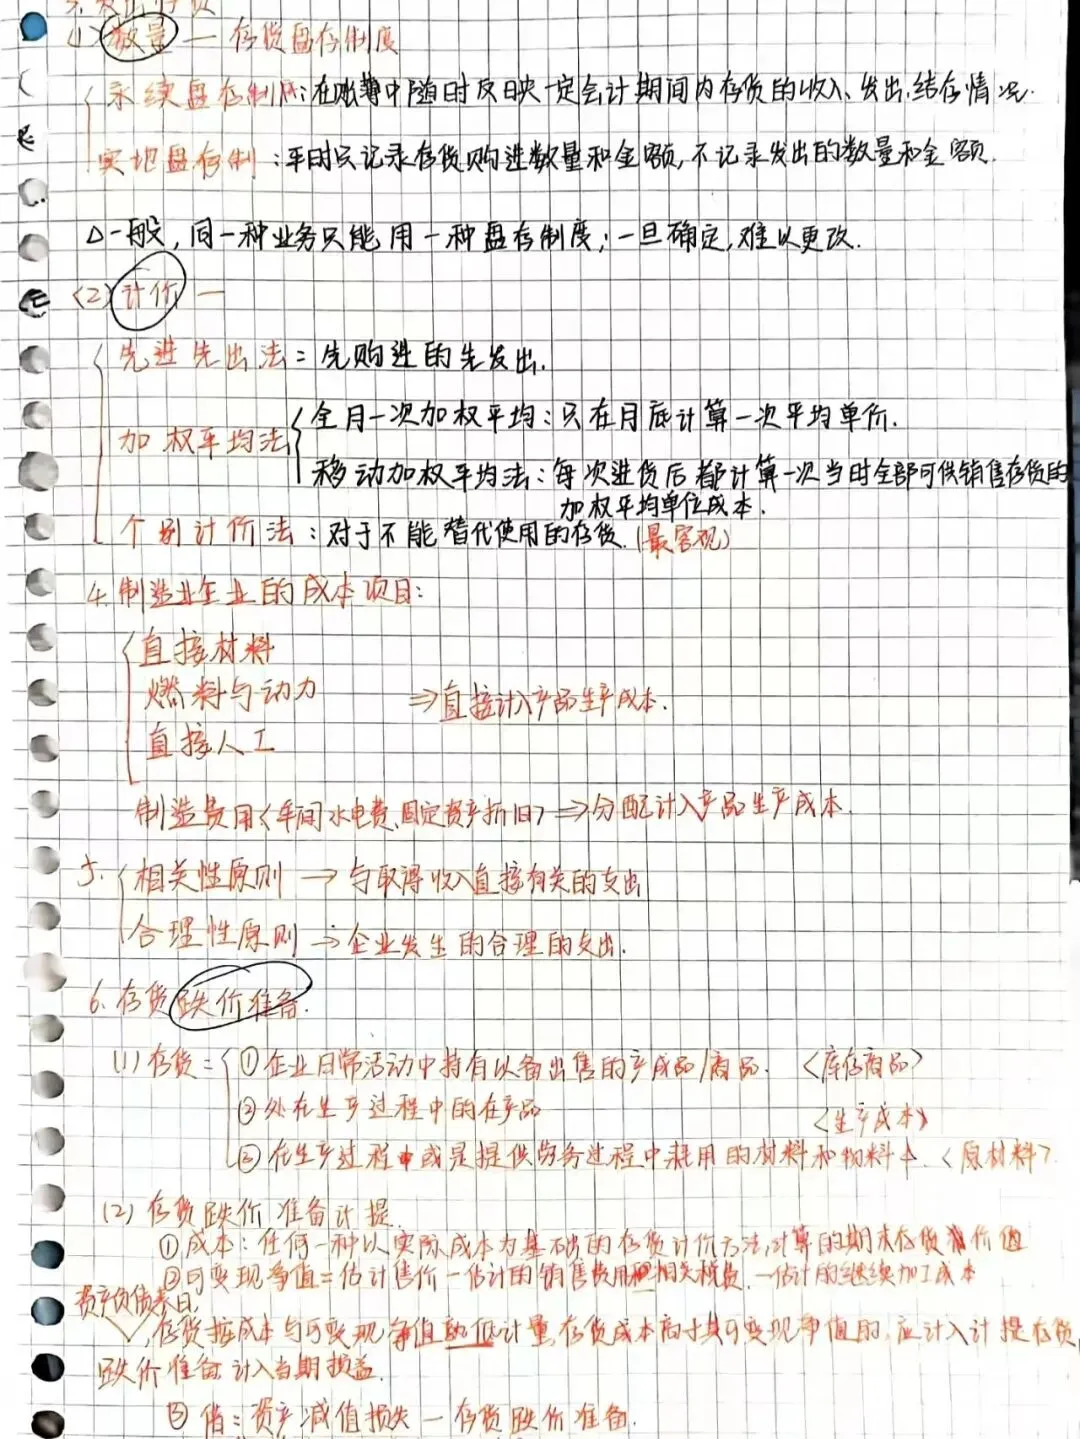 3. 发出存货
(1) 数量 — 存货盘存制度
永续盘存制度: 在账簿中随时反映一定会计期间内存货的收入、发出、结存情况.
实地盘存制: 平时只记录存货购进数量和金额, 不记录发出的数量和金额.
△一般, 同一种业务只能用一种盘存制度; 一旦确定, 难以更改.
(2) 计价 —
先进先出法: 先购进的先发出.
加权平均法
全月一次加权平均: 只在月底计算一次平均单价.
移动加权平均法: 每次进货后都计算一次当时全部可供销售存货的
加权平均单位成本.
个别计价法: 对于不能替代使用的存货. (最客观)
4. 制造业企业的成本项目:
直接材料
燃料与动力 ⇒直接计入产品生产成本.
直接人工
制造费用<车间水电费、固定资产折旧> ⇒分配计入产品生产成本.
5. 相关性原则 → 与取得收入直接有关的支出
合理性原则 → 企业发生的合理的支出.
6. 存货跌价准备.
(1) 存货: ①企业日常活动中持有以备出售的产成品/商品. <库存商品>
②处在生产过程中的在产品 <生产成本>
③在生产过程中或是提供劳务过程中耗用的材料和物料 <原材料>
(2) 存货跌价准备计提.
①成本: 任何一种以实际成本为基础的存货计价方法, 计算的期末存货价值
②可变现净值=估计售价-估计的销售费用和相关税费-估计的继续加工成本
资产负债表日,
存货按成本与可变现净值孰低计量, 存货成本高于其可变现净值的, 应计入计提存货
跌价准备, 计入当期损益.
③ 借: 资产减值损失 — 存货跌价准备.